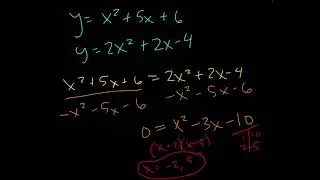 y = x² + 5x + 6
y = 2x² + 2x - 4
x² + 5x + 6 = 2x² + 2x - 4
-x² - 5x - 6 -x² - 5x - 6
0 = x² - 3x - 10
(x+2)(x-5) 1 10
2 5
x = -2, 5